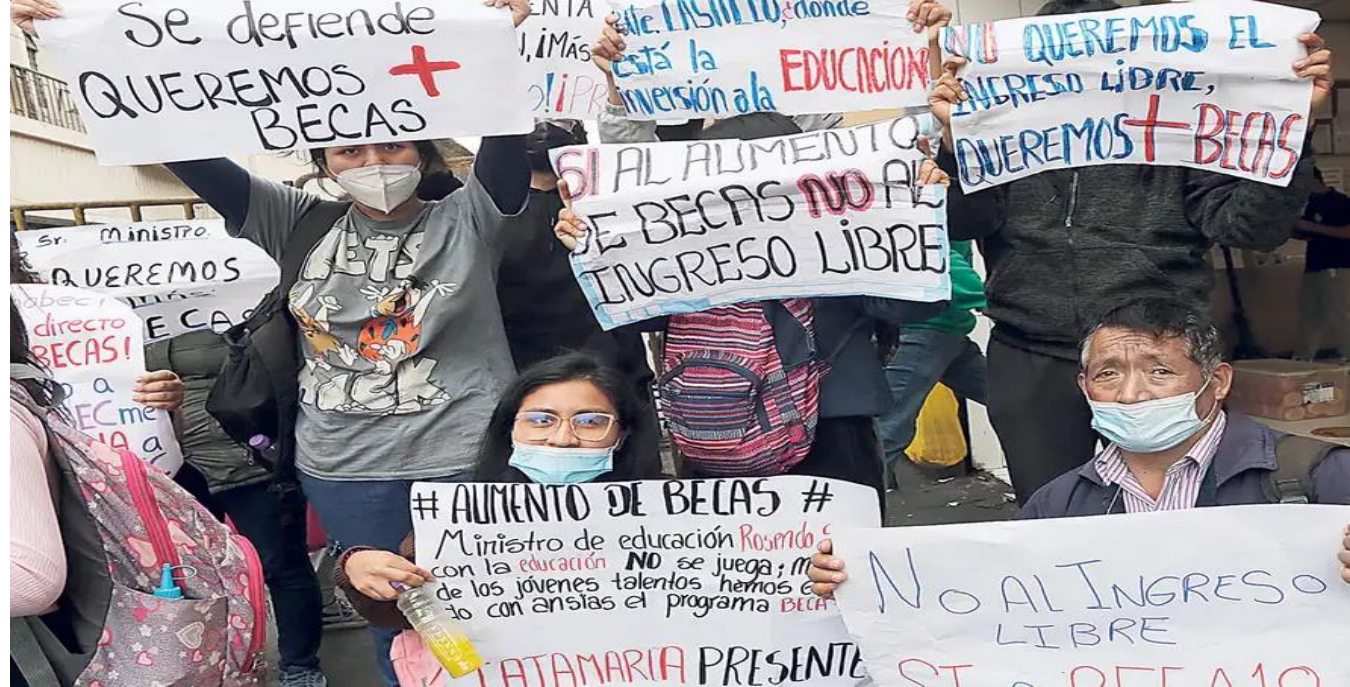 Se defiende
QUEREMOS +
BECAS
¡MÁS
CASTILLO, ¿donde
está la
inversión a la EDUCACION
NO QUEREMOS EL
INGRESO LIBRE,
QUEREMOS + BECAS
SI AL AUMENTO
DE BECAS NO AL
INGRESO LIBRE
Sr. MINISTRO
QUEREMOS
MÁS
directo
BECAS!
a
me
# AUMENTO DE BECAS #
Ministro de educación Rosendo
con la educación NO se juega;
de los jóvenes talentos hemos
con ansias el programa BECA
PRESENTE
NO AL INGRESO
LIBRE